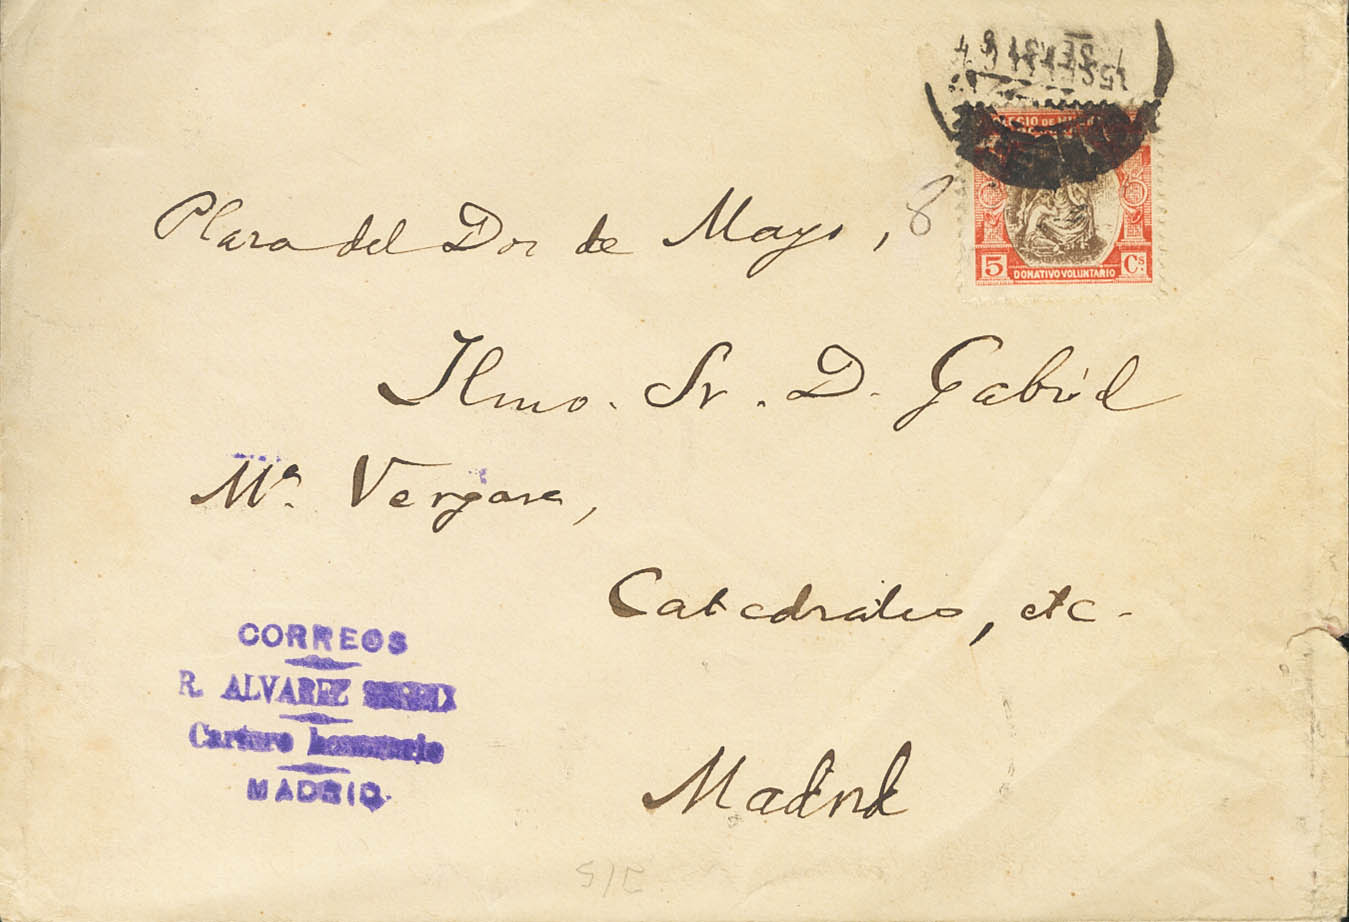 COLEGIO DE HUÉR
5 DONATIVO VOLUNTARIO Cs.
Plaza del Dos de Mayo, 8
Ilmo. Sr. D. Gabriel
Mª. Vergara,
Catedrático, etc.
Madrid
CORREOS
R. ALVAREZ
Cartero honorario
MADRID.